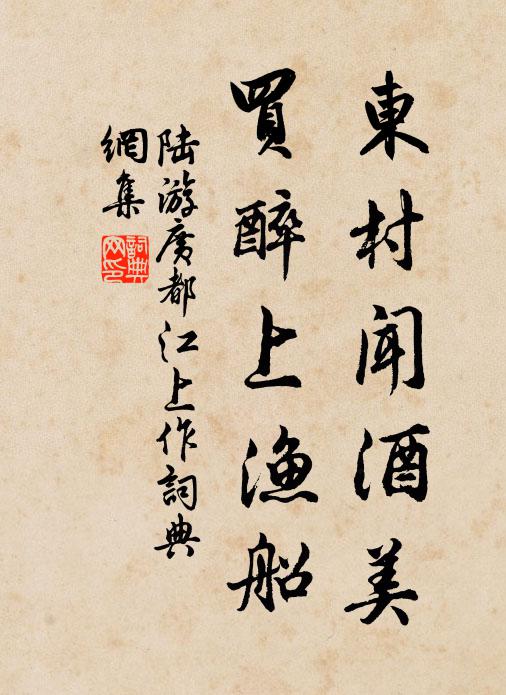 東村闻酒美
買醉上渔船
陆游廣都江上作詞典
網集
詞典
网印